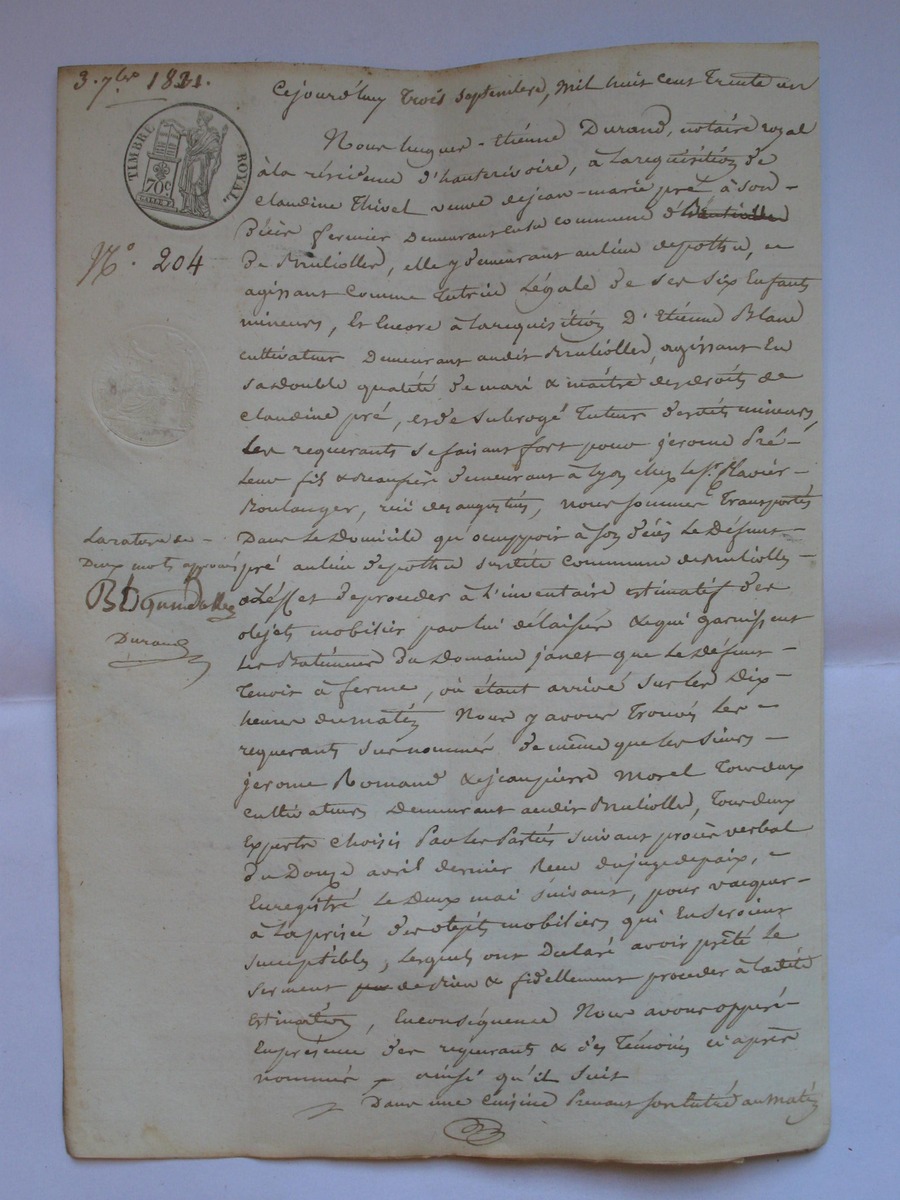 3. 7bre 1831.
TIMBRE ROYAL
70c
N°. 204
Cejourd'huy trois septembre, mil huit cent trente un
Nous hugues-étiénne Durand, notaire royal
à la résidence d'hauterivoire, à la requisition de
claudine Thivel veuve de jean-marie pré à son
décès fermier demeurant en la commune d'
de Brulioller, elle y demeurant au lieu de pothu, et
agissant comme tutrice légale de ses six enfants
mineurs, Et encore à la requisition D'Etiénne Blanc
cultivateur demeurant audit Brulioller, agissant En
sa double qualité de mari & maître des droits de
claudine pré, et de subrogé tuteur desdits mineurs
Les requerants se faisant fort pour jerome Pré
Leur fil & beaufrère demeurant à Lyon chez le Sr. Clavier
Boulanger, rue des augustins, nous sommes Transportés
Dans le domicile qu'occuppoit à son décès le Défunt
pré au lieu de pothu susdite commune de Brulioller
à L'éffet de proceder à l'inventaire estimatif des
objets mobilier par lui délaissés & qui garnissent
les Batiments du Domaine janet que le Défunt
Tenoit à ferme, où étant arrivé sur les Dix
heures du matin Nous y avons Trouvé les
requerants susnommés de même que les sieurs
jerome Romand & jean pierre Morel Tous deux
cultivateurs Demeurant audit Brulioller, Tous deux
Experts choisis Par les Parties suivant procès verbal
du Douze avril dernier Reçu du juge de paix,
Enregistré le Deux mai suivant, pour vacquer
à la prisée des objets mobiliers qui en seroient
susceptibles, lesquels ont Declaré avoir prêté le
serment de bien & fidellement proceder à ladite
Estimation, En conséquence Nous avons opperé
En présence des requerants & des Témoins ci après
nommés ainsi qu'il suit
Dans une cuisine Prenant son entrée au matin
La rature de
Deux mots approuvé
Durand